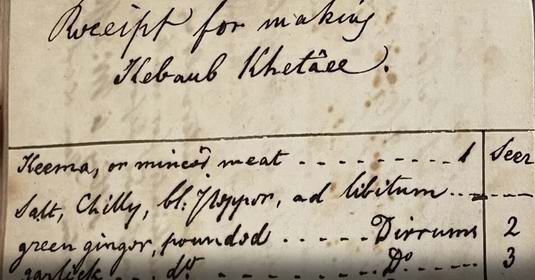 Receipt for making
Kebaub Khetâee.
Keema, or minced meat - - - - - - - - - - 1 Seer
Salt, Chilly, bl: Pepper, ad libitum - - - - -
green ginger, pounded - - - - - Dirrums 2
garlick - - - do - - - - - - - - - Do 3